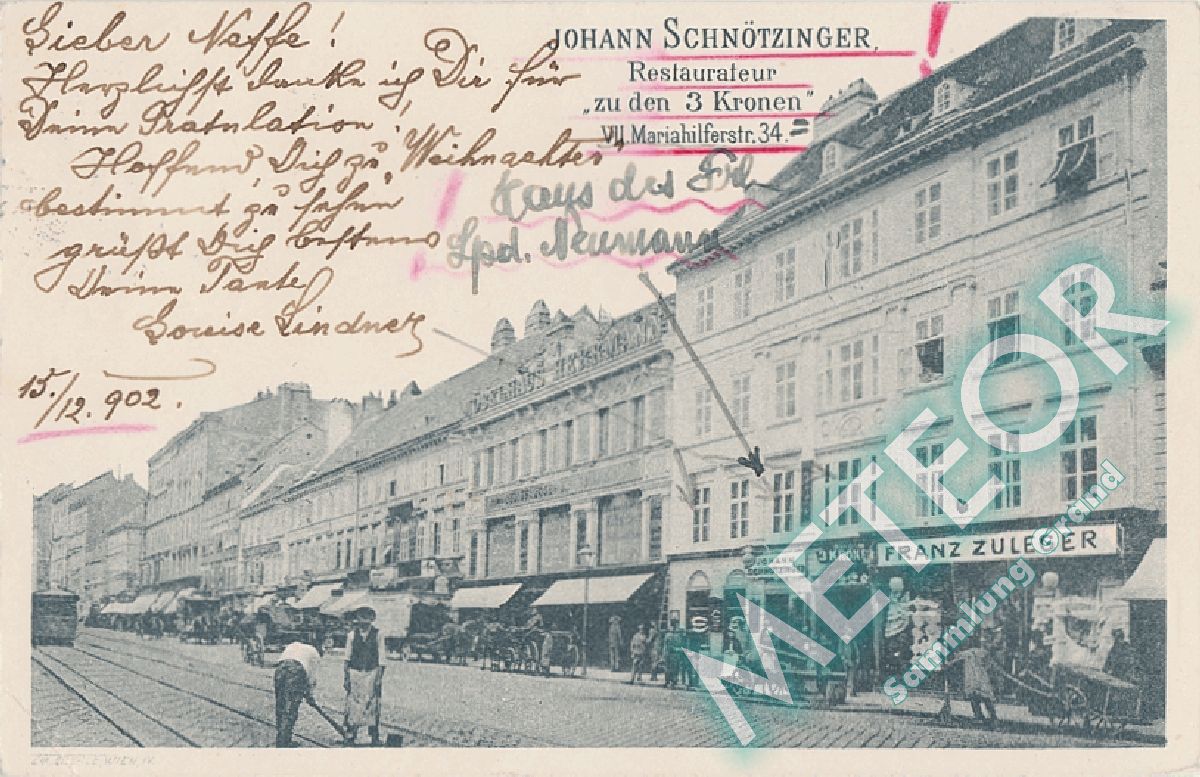 Lieber Neffe!
Herzlichst danke ich Dir für
Deine Gratulation!
Hoffend, Dich zu Weihnachten
bestimmt zu sehen
grüßt Dich bestens
Deine Tante
Louise Lindner
15./12. 902.
JOHANN SCHNÖTZINGER,
Restaurateur
„zu den 3 Kronen"
VII, Mariahilferstr. 34.
Haus des
Lpd. Neumann
3 KRONEN
FRANZ ZULEGER
JOHANN
METEOR
Sammlung Brand